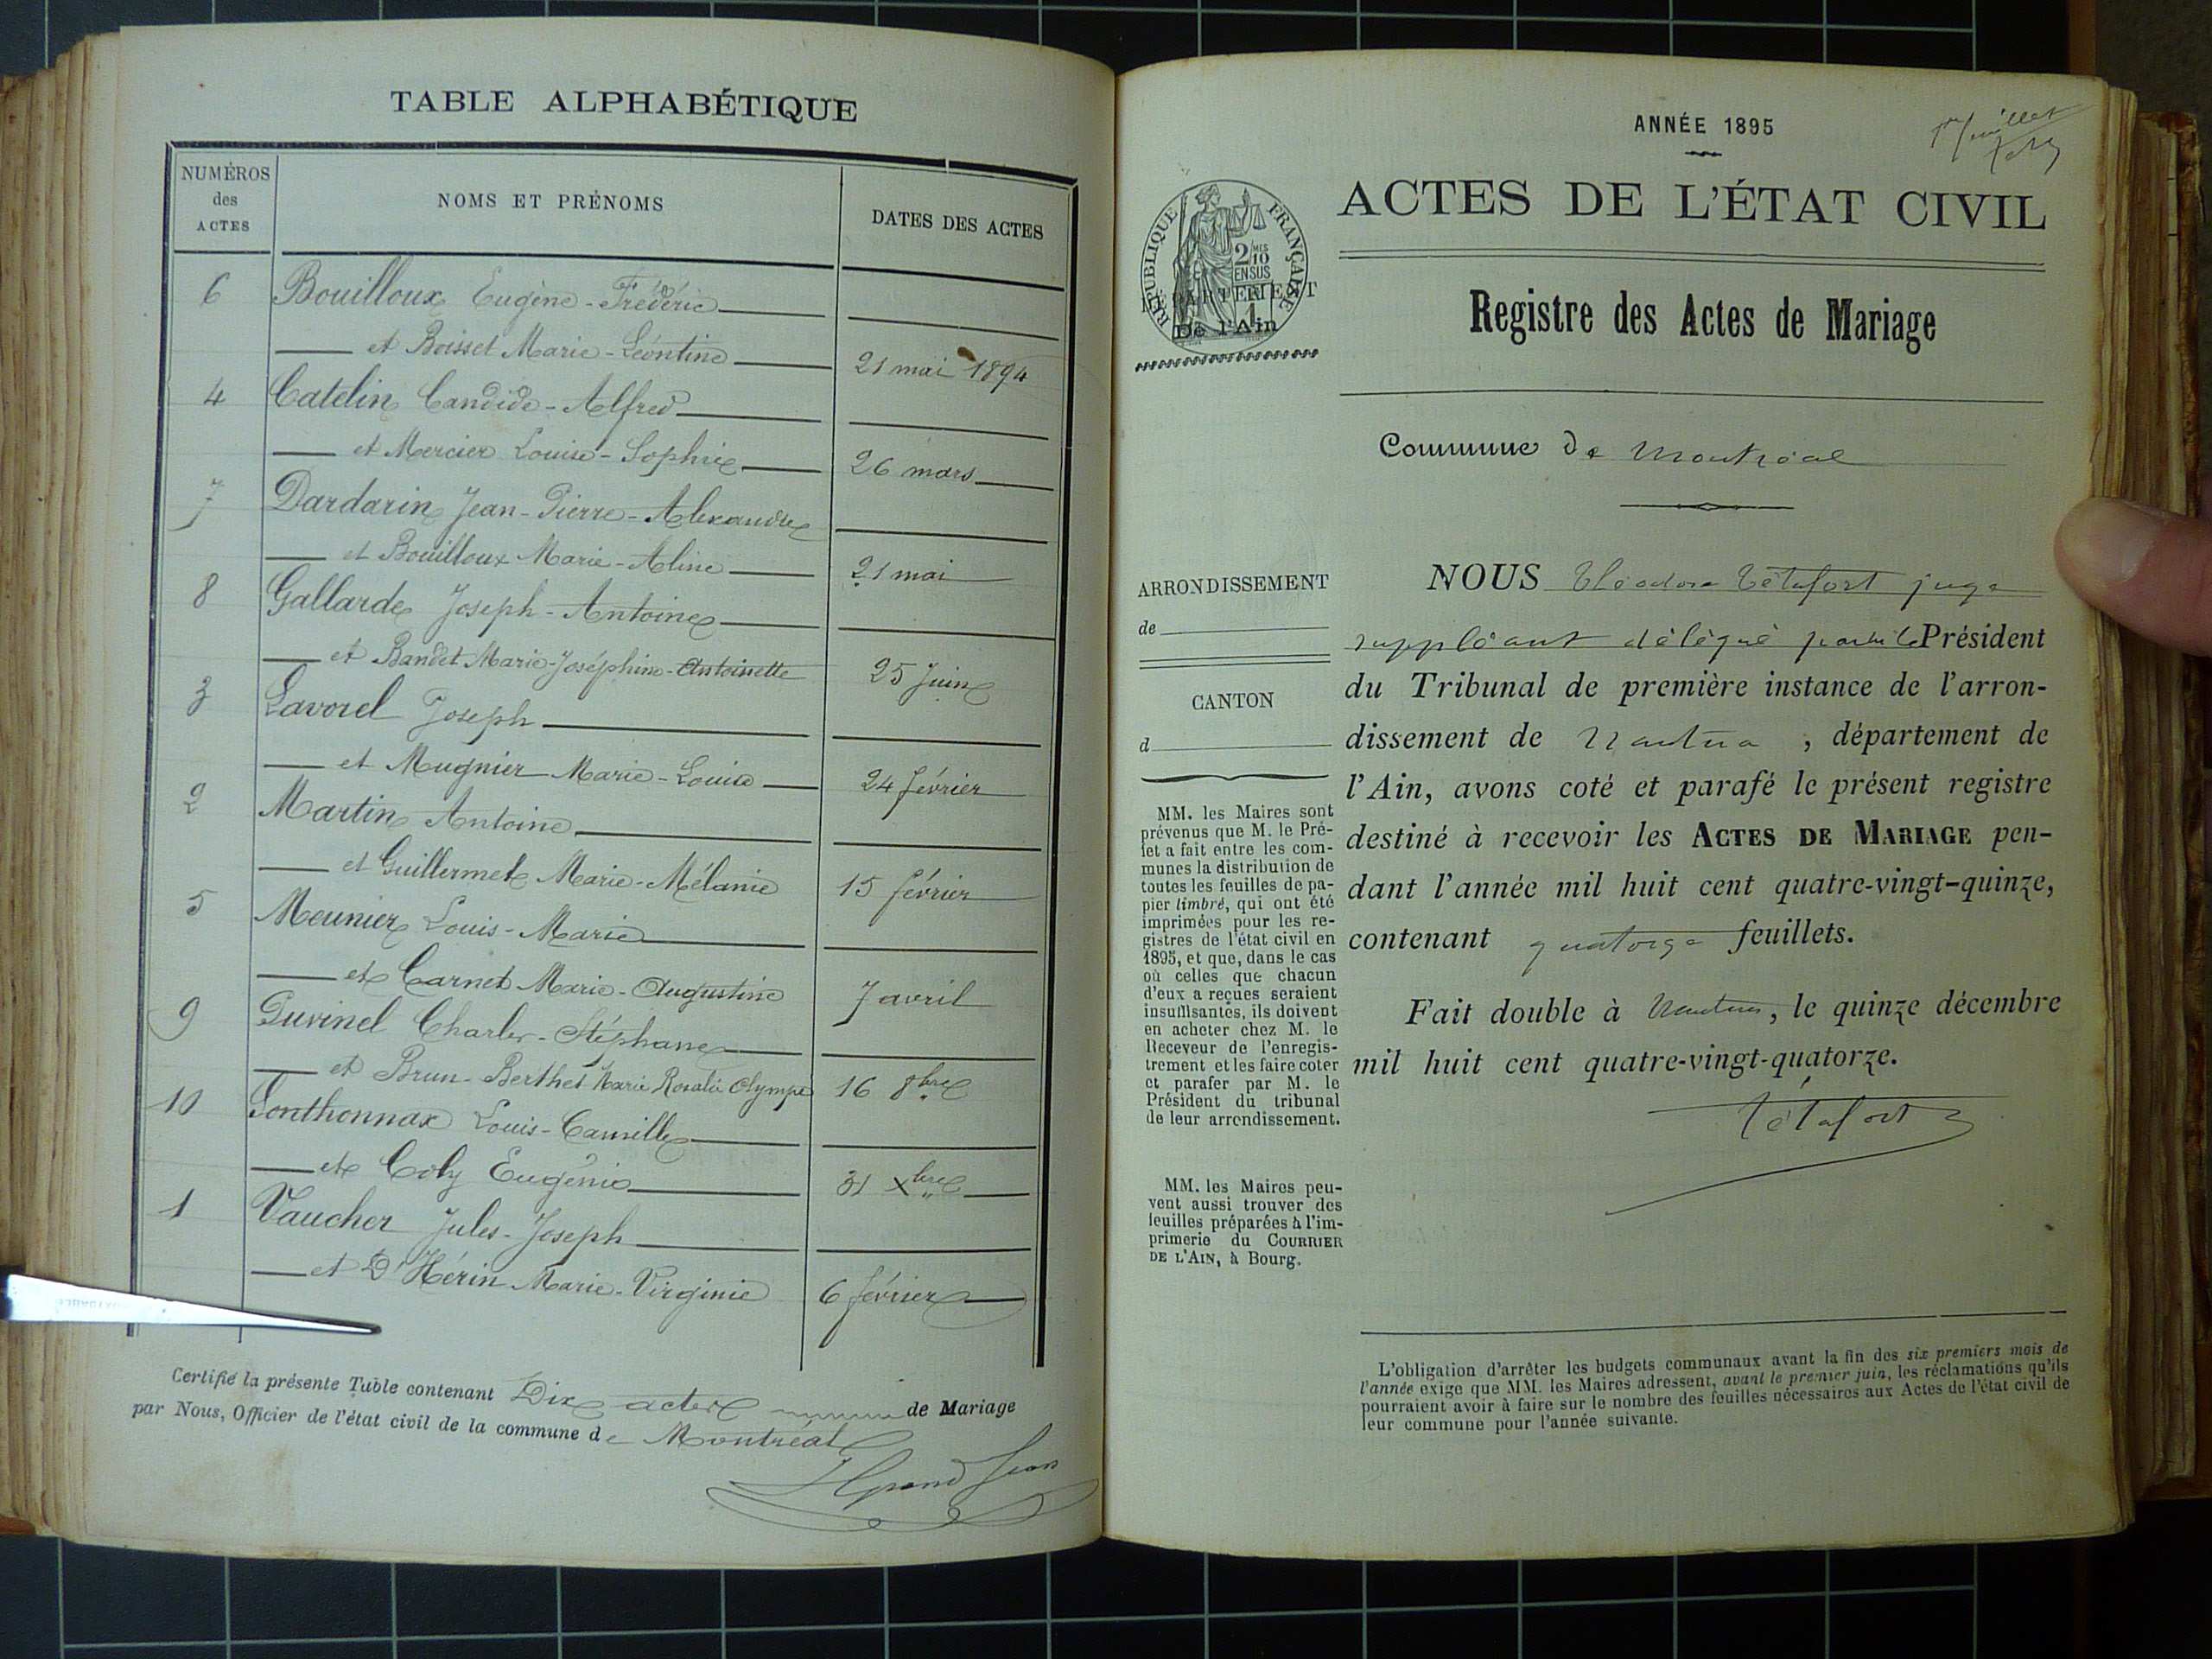 TABLE ALPHABÉTIQUE
NUMÉROS
des
ACTES
NOMS ET PRÉNOMS
DATES DES ACTES
6 Bouilloux Eugène-Frédéric
et Boisset Marie-Léontine 21 mai 1894
4 Catelin Candide-Alfred
et Mercier Louise-Sophie 26 mars
7 Dardarin Jean-Pierre-Alexandre
et Bouilloux Marie-Aline 21 mai
8 Gallarde Joseph-Antoine
et Bandet Marie-Joséphine-Antoinette 25 Juin
3 Lavorel Joseph
et Mugnier Marie-Louise 24 février
2 Martin Antoine
et Guillermet Marie-Mélanie 15 février
5 Meunier Louis-Marie
et Carnet Marie-Augustine 7 avril
9 Puvinel Charles-Stéphane
et Brun-Berthet Marie Rosalie Olympe 16 8bre
10 Sonthonnax Louis-Camille
et Coly Eugénie 31 Xbre
1 Vaucher Jules-Joseph
et D'Hérin Marie-Virginie 6 février
Certifié la présente Table contenant Dix actes de Mariage
par Nous, Officier de l'état civil de la commune de Montréal
HGrand Jean
1er feuillet
ANNÉE 1895
ACTES DE L'ÉTAT CIVIL
RÉPUBLIQUE FRANÇAISE
2/10 MES
EN SUS
DÉPARTEMENT
De l'Ain
Registre des Actes de Mariage
Commune de Montréal
ARRONDISSEMENT
de
CANTON
d
MM. les Maires sont
prévenus que M. le Pré-
fet a fait entre les com-
munes la distribution de
toutes les feuilles de pa-
pier timbré, qui ont été
imprimées pour les re-
gistres de l'état civil en
1895, et que, dans le cas
où celles que chacun
d'eux a reçues seraient
insuffisantes, ils doivent
en acheter chez M. le
Receveur de l'enregis-
trement et les faire coter
et parafer par M. le
Président du tribunal
de leur arrondissement.
MM. les Maires peu-
vent aussi trouver des
feuilles préparées à l'im-
primerie du COURRIER
DE L'AIN, à Bourg.
NOUS Théodore Tétafort juge
suppléant délégué par le Président
du Tribunal de première instance de l'arron-
dissement de Nantua, département de
l'Ain, avons coté et parafé le présent registre
destiné à recevoir les ACTES DE MARIAGE pen-
dant l'année mil huit cent quatre-vingt-quinze,
contenant quatorze feuillets.
Fait double à Nantua, le quinze décembre
mil huit cent quatre-vingt-quatorze.
Tétafort
L'obligation d'arrêter les budgets communaux avant la fin des six premiers mois de
l'année exige que MM. les Maires adressent, avant le premier juin, les réclamations qu'ils
pourraient avoir à faire sur le nombre des feuilles nécessaires aux Actes de l'état civil de
leur commune pour l'année suivante.